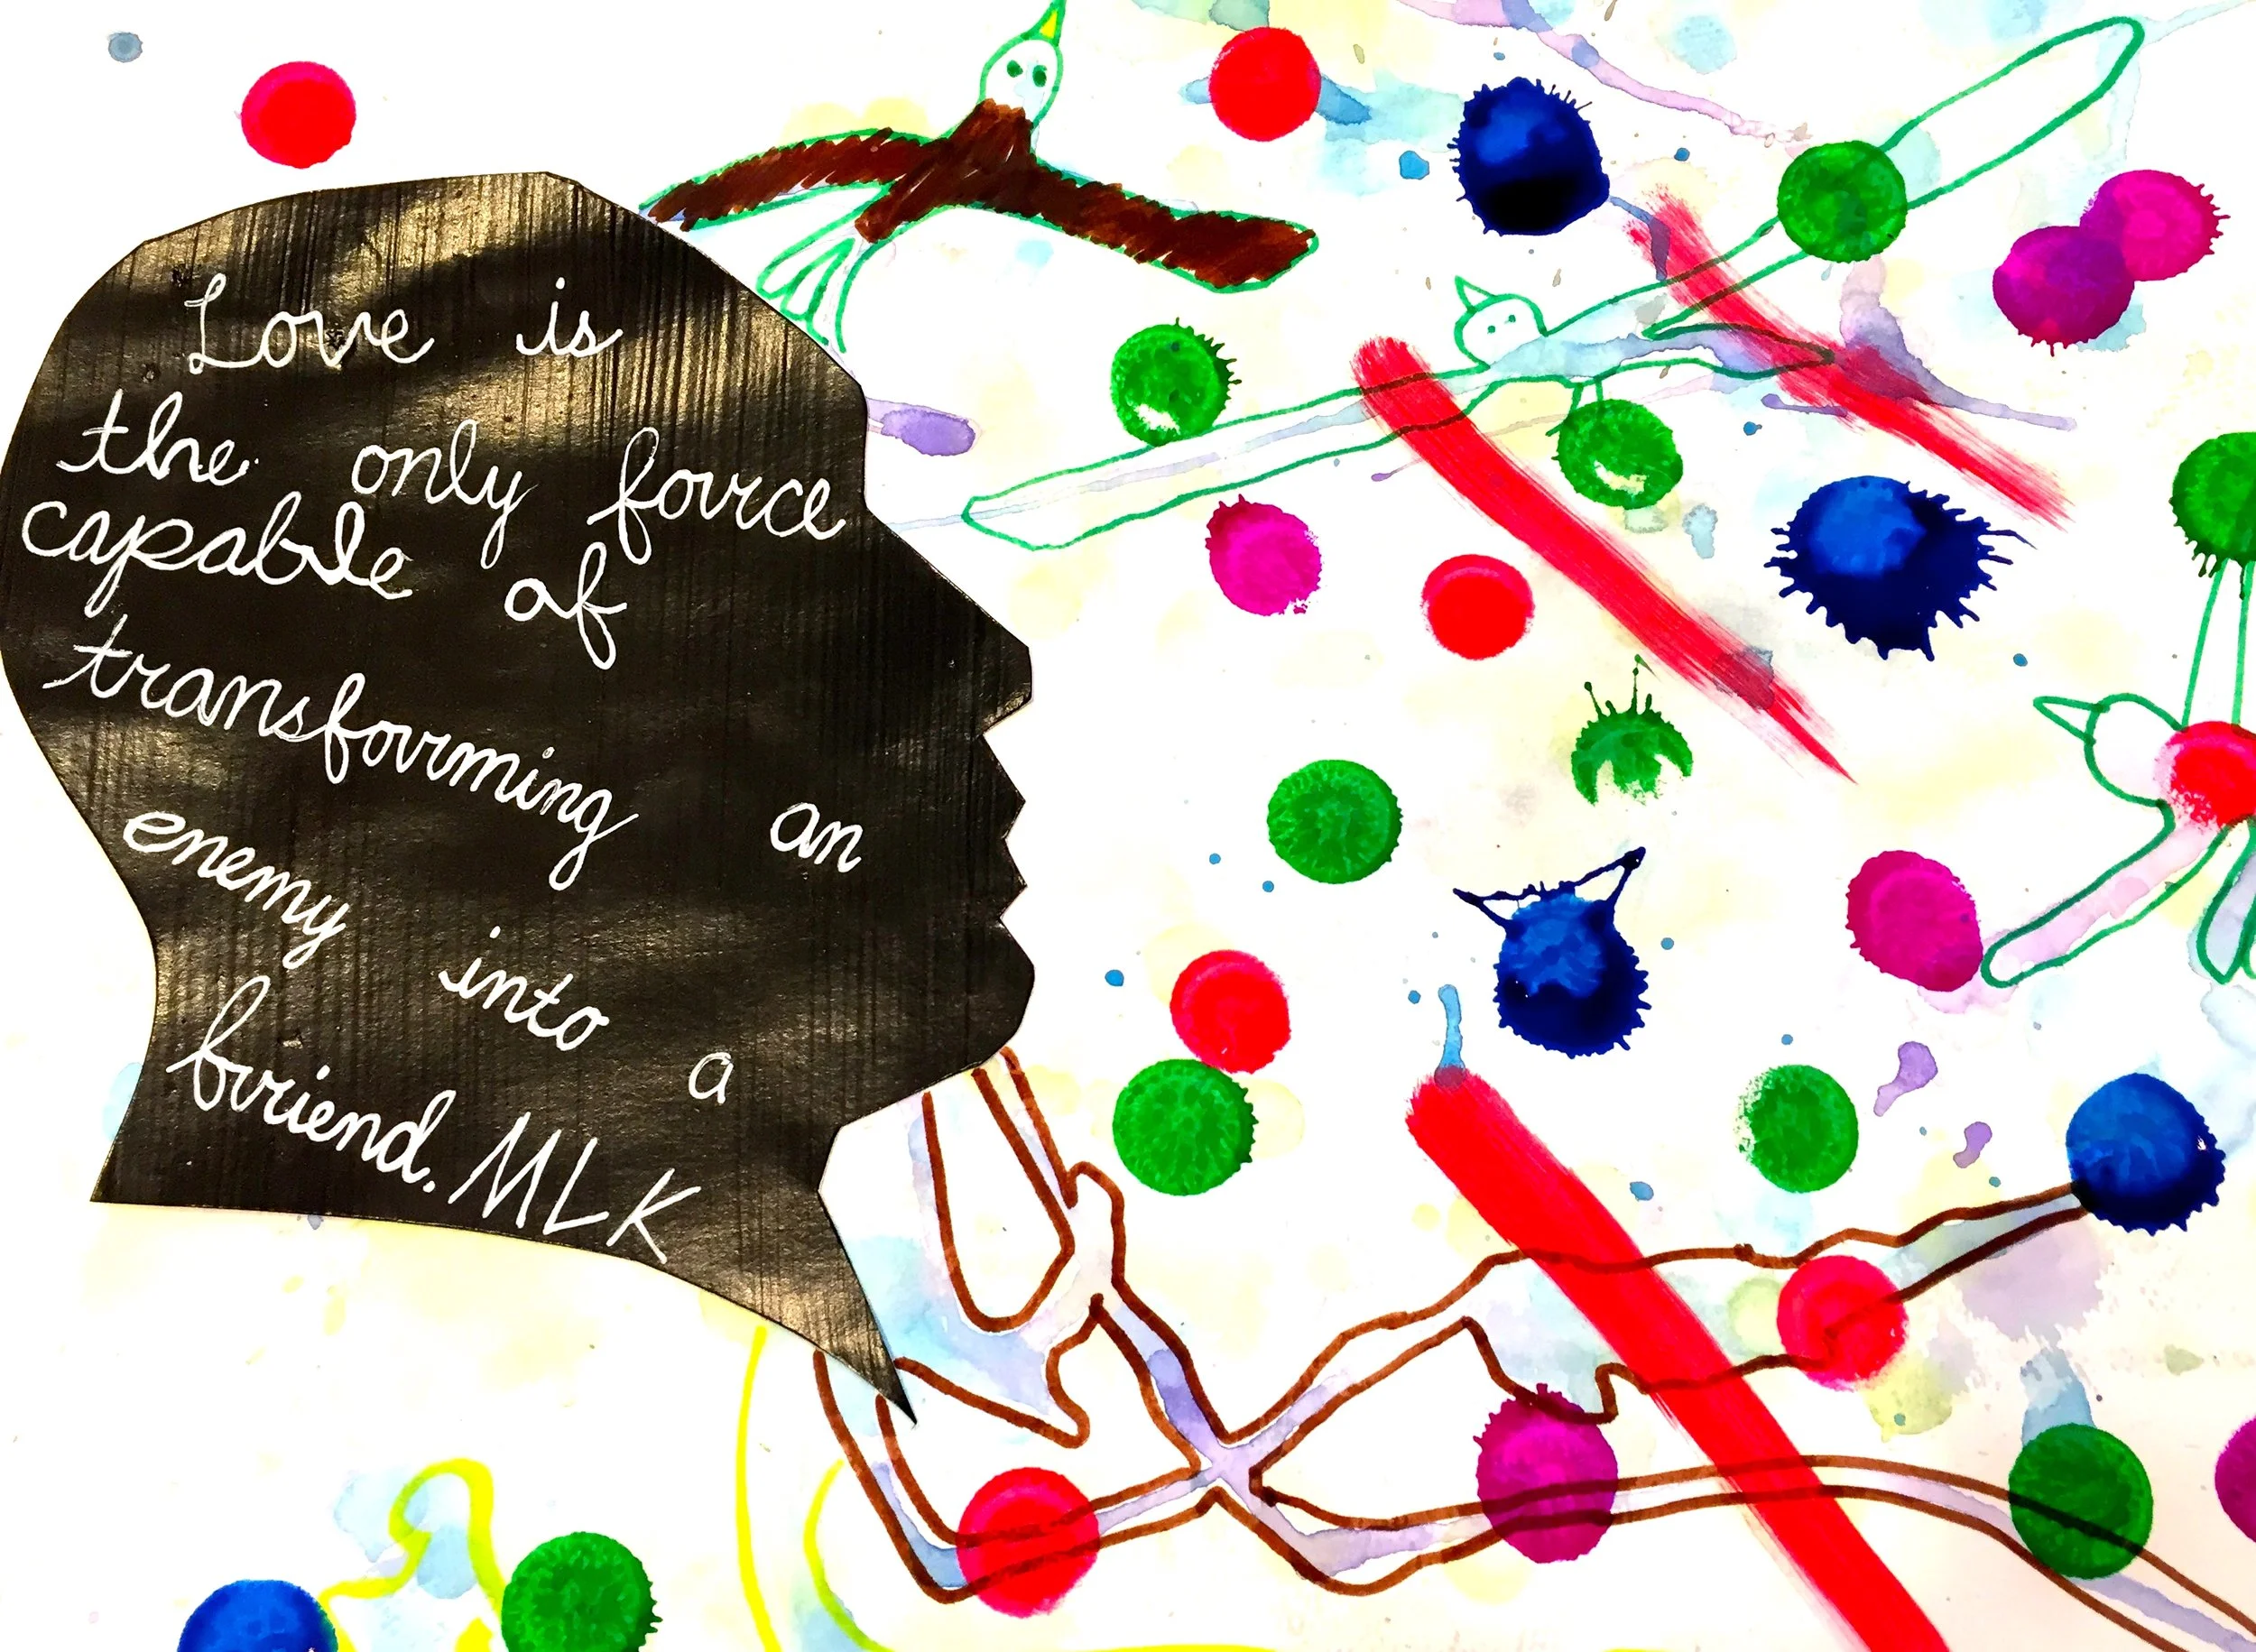 Love is
the only force
capable of
transforming an
enemy into a
friend. MLK